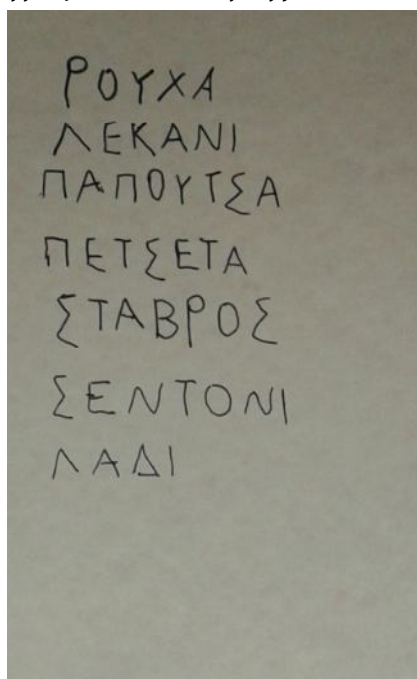 ΡΟΥΧΑ
ΛΕΚΑΝΙ
ΠΑΠΟΥΤΣΑ
ΠΕΤΣΕΤΑ
ΣΤΑΒΡΟΣ
ΣΕΝΤΟΝΙ
ΛΑΔΙ